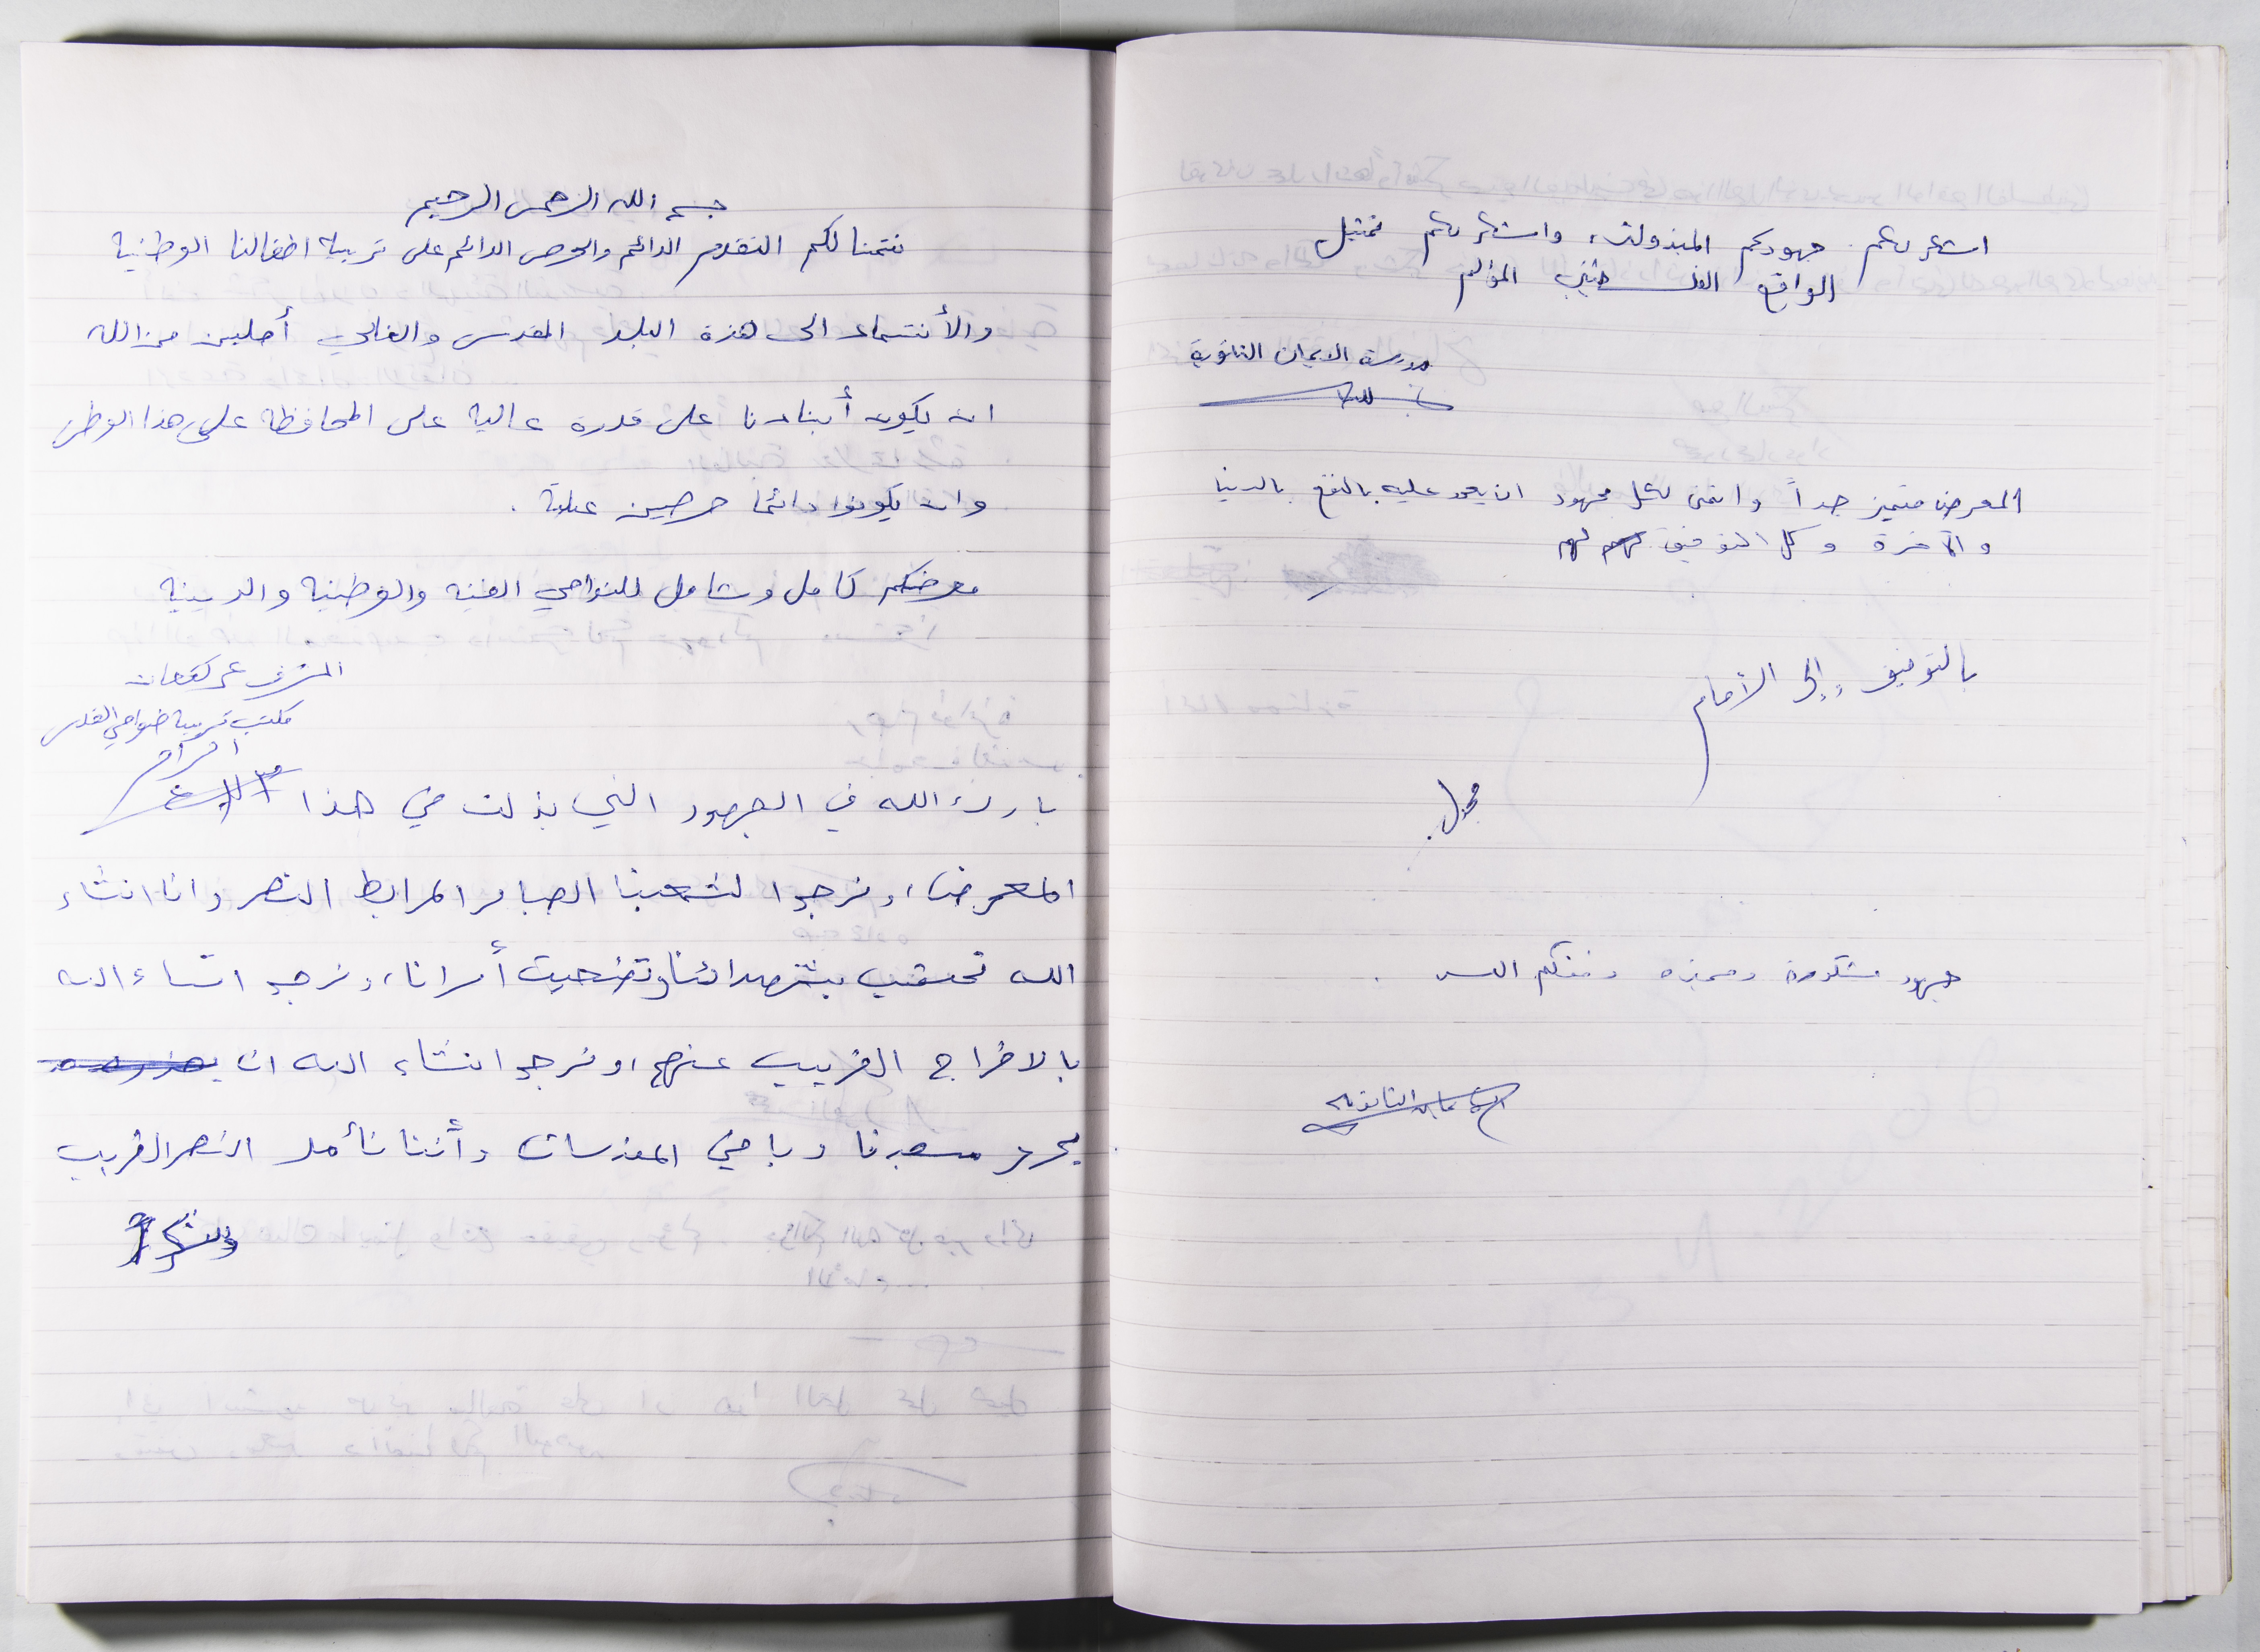 اشكر لكم جهودكم المبذولة، واشكر لكم تمثيل
الواقع الفلسطيني المؤلم
مدرسة الايمان الثانوية
المعرض متميز جداً واتمنى لكل مجهود ان يعود عليه بالنفع بالدنيا
والآخرة وكل التوفيق لهم
بالتوفيق وإلى الأمام
جهود مشكورة ومميزه وفقكم الله
الثانويه
بسم الله الرحمن الرحيم
نتمنا لكم التقدم الدائم والحرص الدائم على تربية اطفالنا الوطنية
والأنتماء الى هذة البلد المقدس والغالي أملين من الله
ان يكون أبناءنا على قدرة عالية على المحافظة على هذا الوطن
وان يكونوا دائما حرصين علية .
معرضكم كامل وشامل للنواحي الفنية والوطنية والدينية
المشرف
مكتب تربية ضواحي القدس
الرام
بارك الله في الجهود التي بذلت في هذا
المعرض، ونرجوا لشعبنا الصابر المرابط النصر وانا انشاء
الله تحتسب بشهدائنا وتضحيت أسرانا، ونرجو انشاء الله
بالافراج القريب عنهم، ونرجو انشاء الله ان
يحرر مسجدنا وباقي المقدسات وأننا نأمل النصر القريب
وشكراً